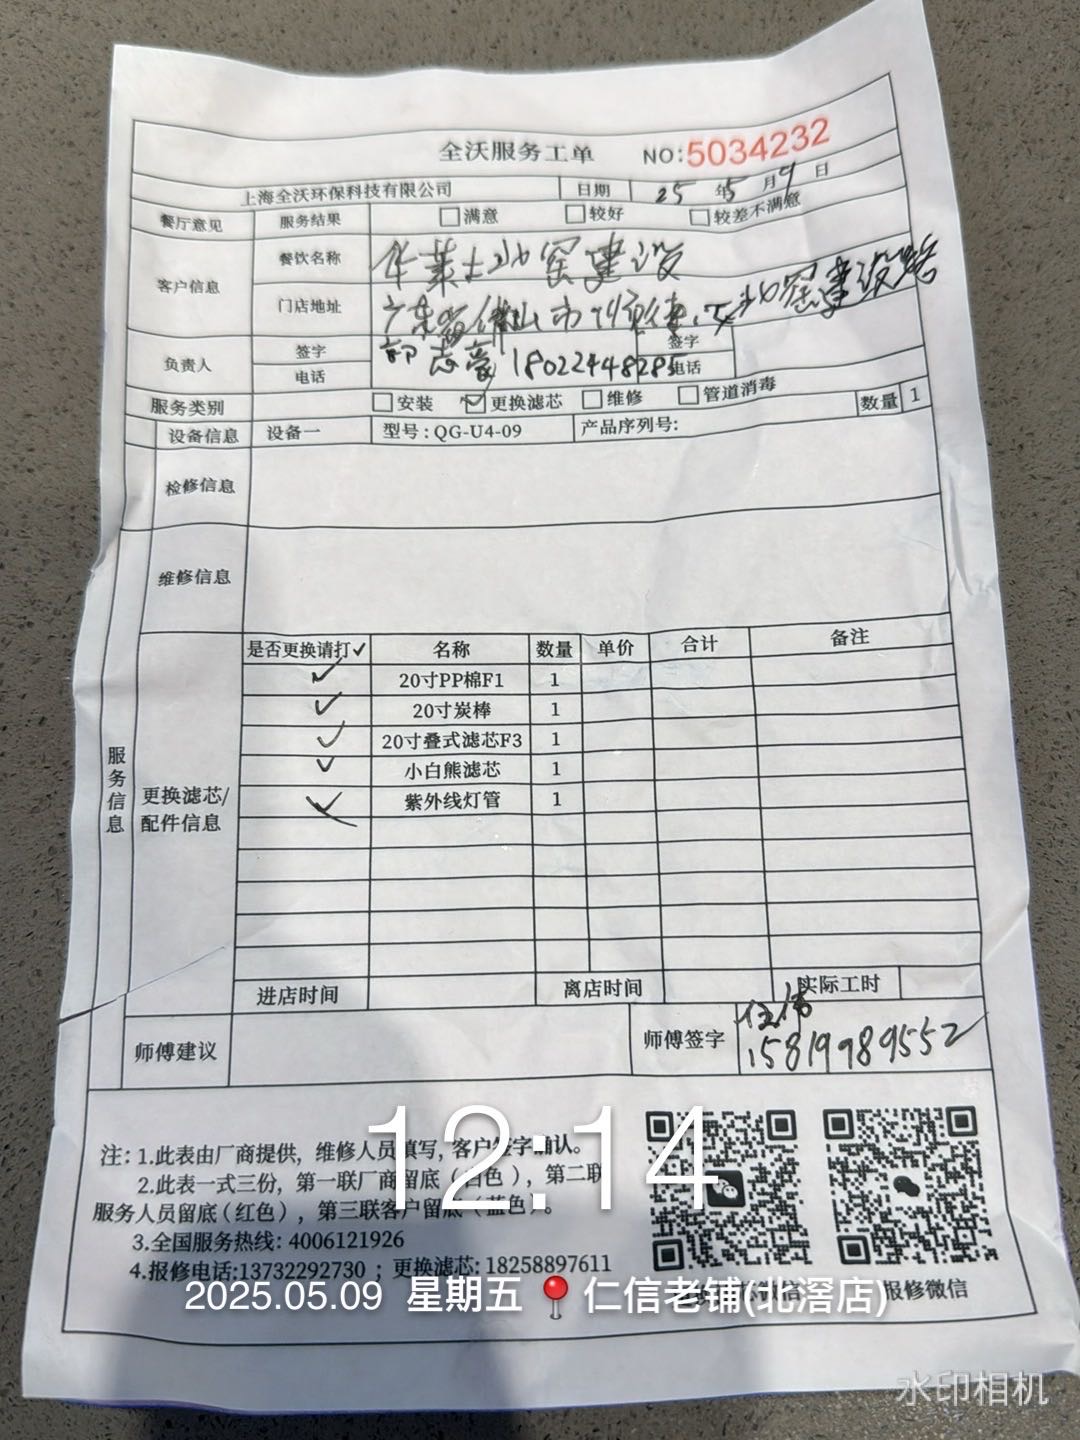 全沃服务工单 NO:5034232
上海全沃环保科技有限公司 日期 25 年 5 月 9 日
餐厅意见 服务结果 满意 较好 较差不满意
客户信息 餐饮名称 华莱士北窖建设
门店地址 广东省佛山市顺德区北窖建设路
负责人 签字 郭志豪 签字
电话 18022448285 电话
服务类别 安装 ✓ 更换滤芯 维修 管道消毒 数量 1
服务信息
设备信息 设备一 型号:QG-U4-09 产品序列号:
检修信息
维修信息
更换滤芯/配件信息
是否更换请打✓ 名称 数量 单价 合计 备注
✓ 20寸PP棉F1 1
✓ 20寸炭棒 1
✓ 20寸叠式滤芯F3 1
✓ 小白熊滤芯 1
✓ 紫外线灯管 1
进店时间 离店时间 实际工时
师傅建议 师傅签字 伍伟
15819989552
注: 1.此表由厂商提供，维修人员填写，客户签字确认。
2.此表一式三份，第一联厂商留底（白色），第二联
服务人员留底(红色)，第三联客户留底（蓝色）。
3.全国服务热线: 4006121926
4.报修电话:13732292730 ; 更换滤芯: 18258897611
报修微信
12:14
2025.05.09 星期五 仁信老铺(北滘店)
水印相机